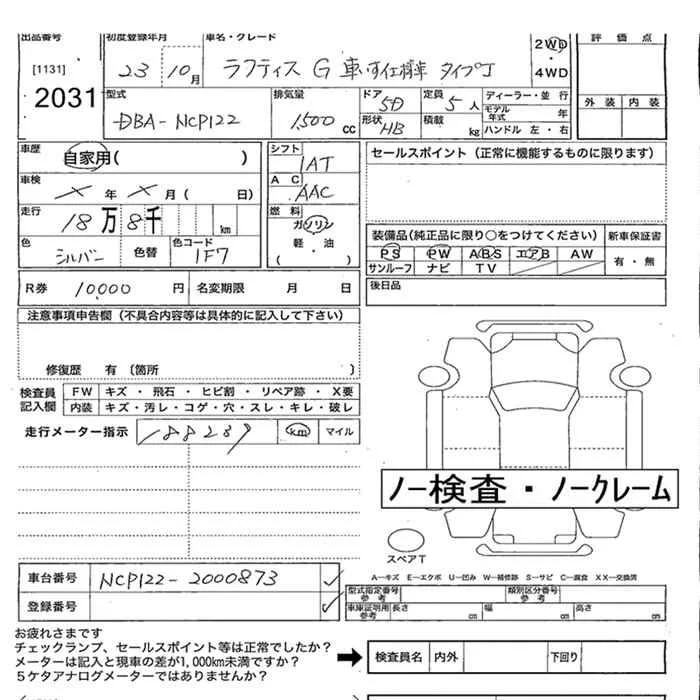 出品番号 初度登録年月 車名・グレード 2WD 評価点
[1131] 23 10月 ラフティス G 車いす仕様車 タイプJ ・
2031 4WD
型式 排気量 ドア 5D 定員 5人 ディーラー・並行 外装 内装
DBA-NCP122 1,500cc 形状 HB 積載 kg モデル年式 年
ハンドル 左・右
車歴 自家用( ) シフト 1AT セールスポイント(正常に機能するものに限ります)
車検 ×年×月( 日) AC AAC
走行 18万8千 km 燃料 ガソリン 装備品(純正品に限り○をつけてください) 新車保証書
色 シルバー 色替 色コード 1F7 軽・油 PS PW ABS エアB AW 有・無
( ) サンルーフ ナビ TV
R券 10,000円 名変期限 月 日 後日品
注意事項申告欄(不具合内容等は具体的に記入して下さい)
修復歴 有〔箇所 〕
検査員 FW キズ・飛石・ヒビ割・リペア跡・X要
記入欄 内装 キズ・汚レ・コゲ・穴・スレ・キレ・破レ
走行メーター指示 188237 km マイル
ノー検査・ノークレーム
スペアT
車台番号 NCP122-2000873 A―キズ E―エクボ U―凹み W―補修跡 S―サビ C―腐食 XX―交換済
型式指定番号 参考 類別区分番号 参考
登録番号 車庫証明用 参考 長さ cm 幅 cm 高さ cm
お疲れさまです
チェックランプ、セールスポイント等は正常でしたか?
メーターは記入と現車の差が1,000km未満ですか?
5ケタアナログメーターではありませんか?
検査員名 内外 下回り